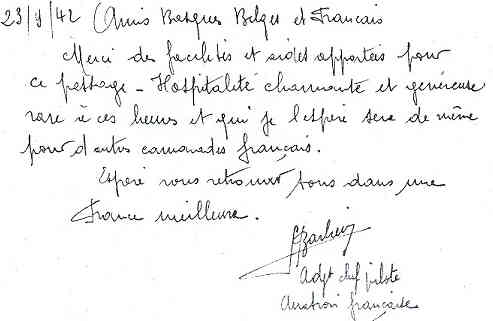 23/9/42 Amis Basques Belges et Français
Merci des facilités et aides apportées pour
ce passage - Hospitalité charmante et généreuse
rare à ces heures et qui je l'espère sera de même
pour d'autres camarades français.
Espère vous retrouver tous dans une
France meilleure.
Adjt chef pilote
Aviation française